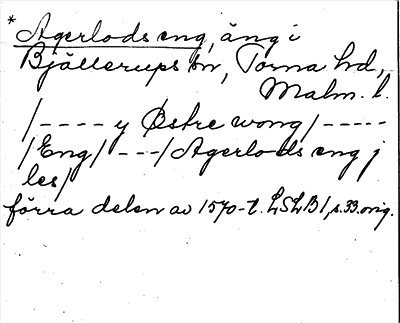 * Agerlods eng, äng i
Bjällerups sn, Torna hd,
Malm. l.
/---- y Østre wong/-----
/Eng/ ---/Agerlods eng j
les/
förra delen av 1570-t. LSLB1, s. 33. orig.